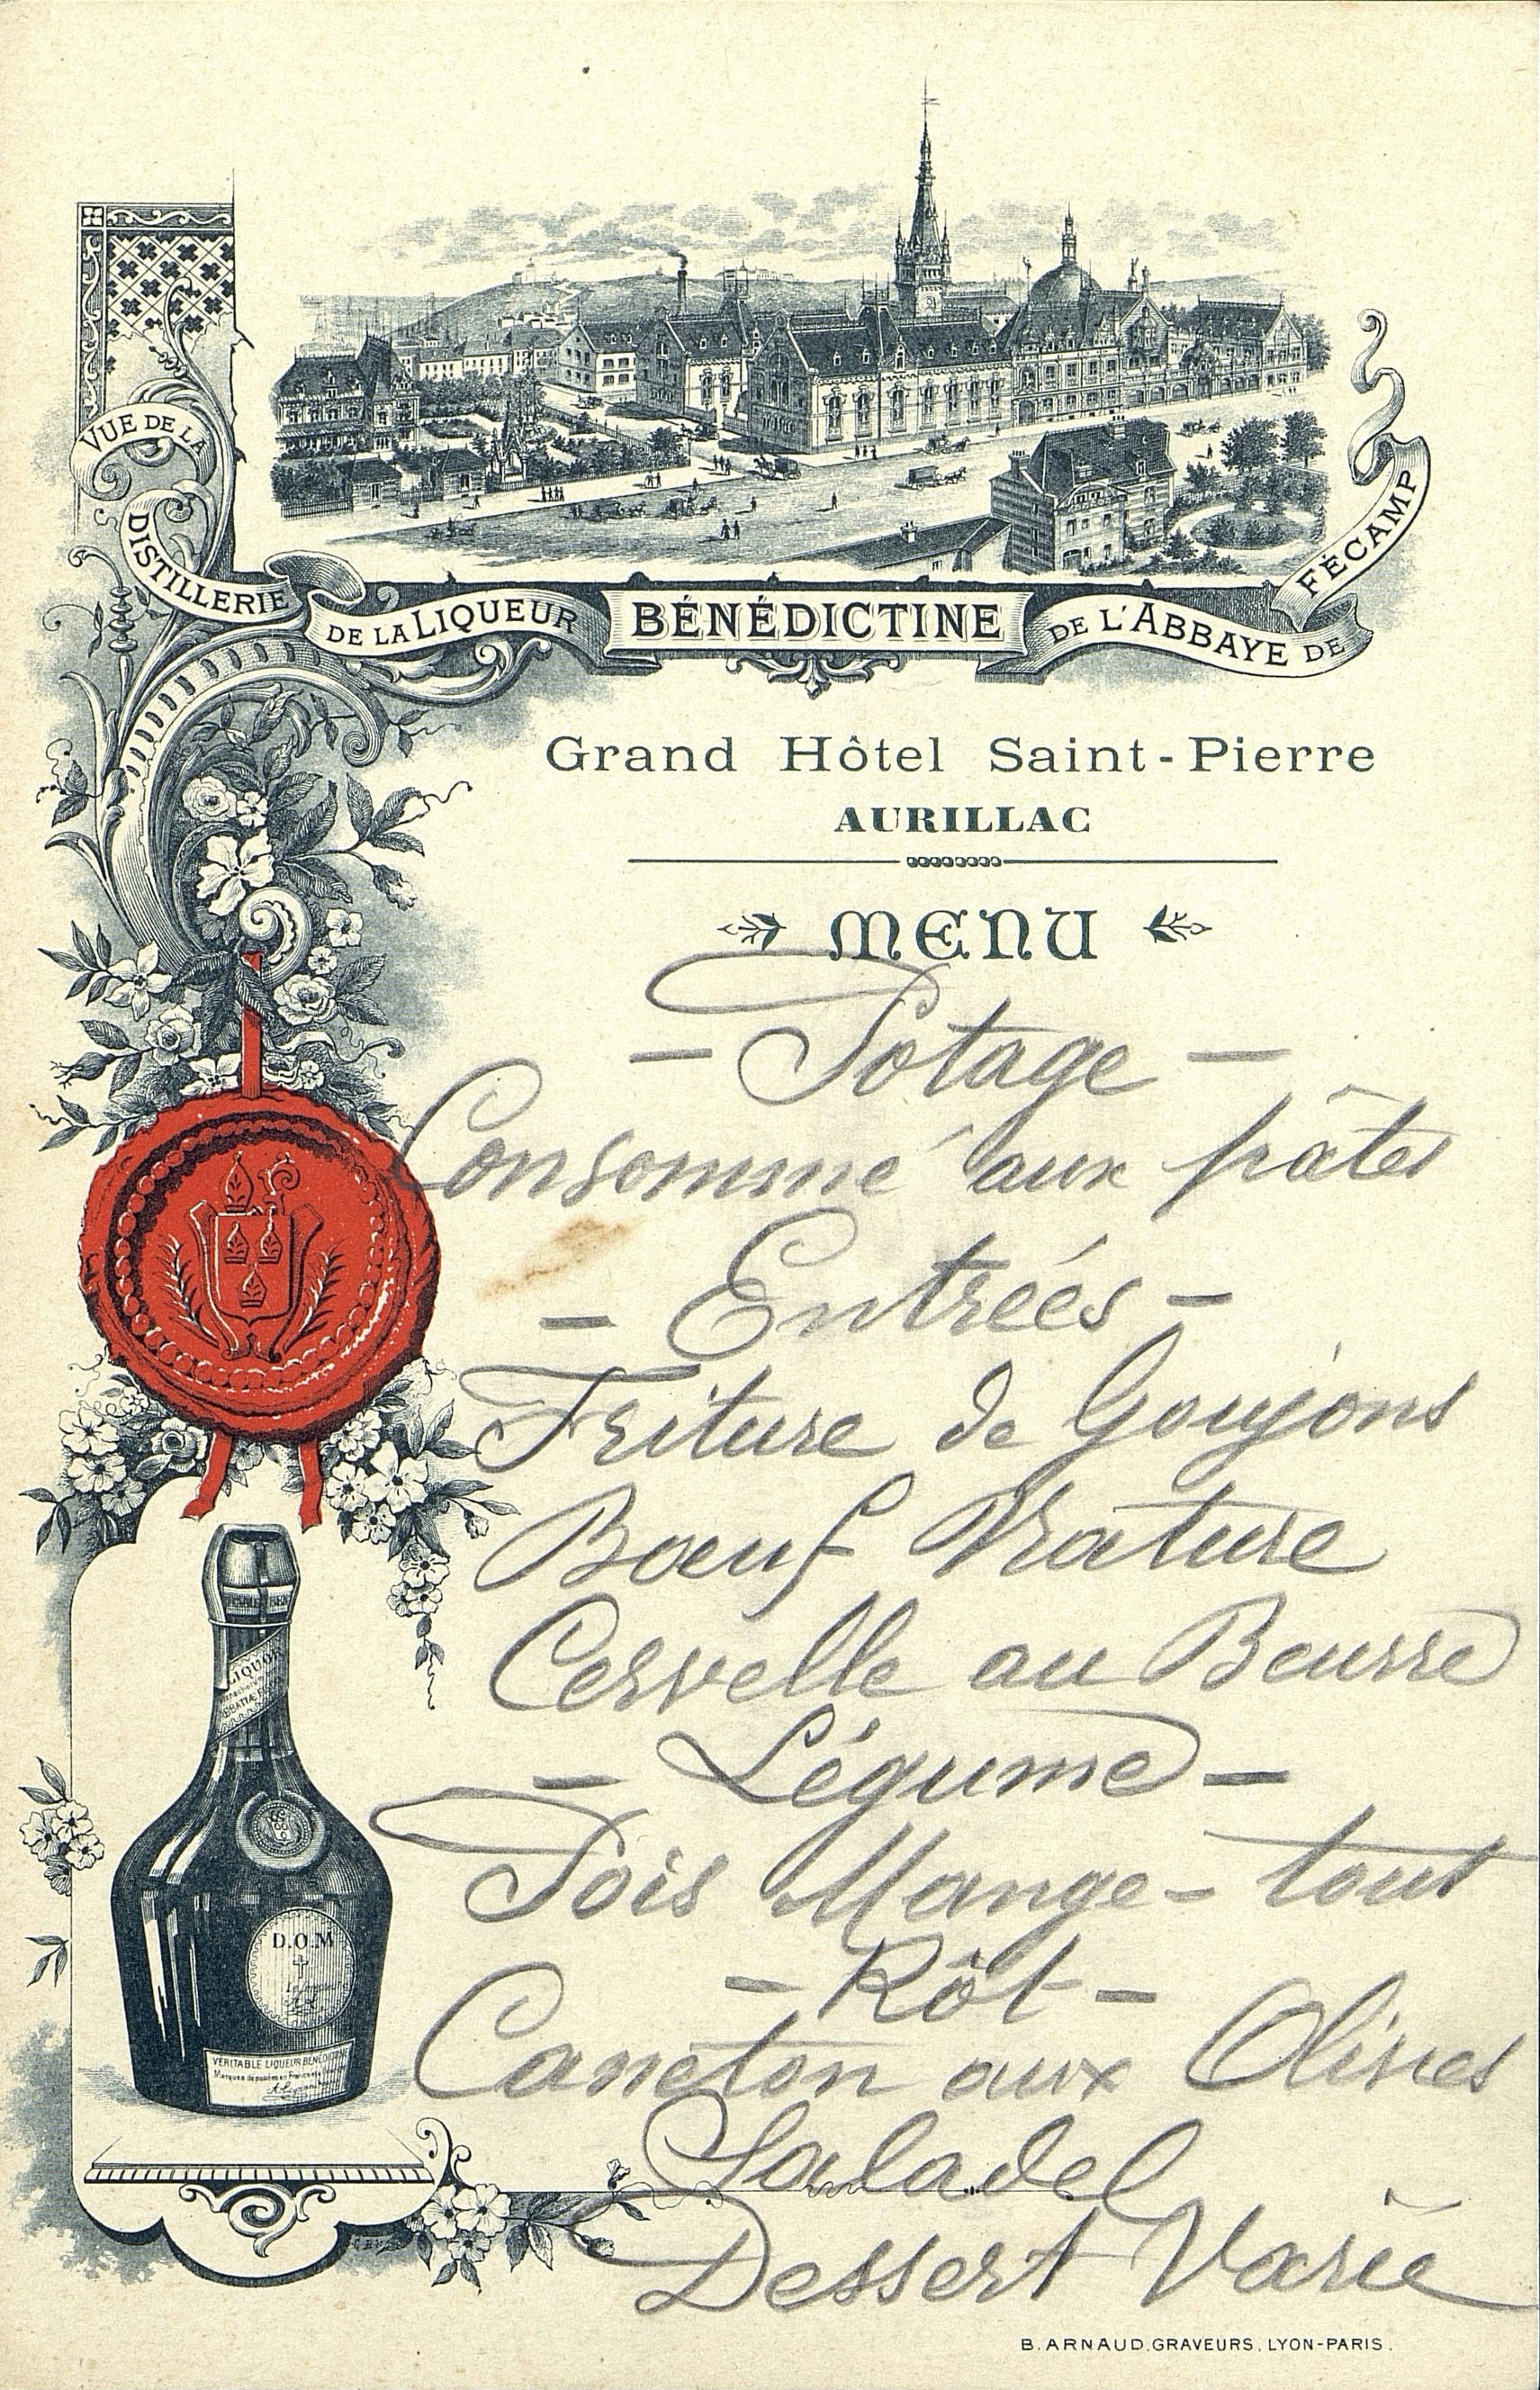 VUE DE LA
DISTILLERIE
DE LA LIQUEUR
BÉNÉDICTINE
DE L'ABBAYE DE
FÉCAMP
Grand Hôtel Saint-Pierre
AURILLAC
MENU
- Potage -
Consommé aux pâtes
- Entrées -
Friture de Goujons
Bœuf Nature
Cervelle au Beurre
- Légume -
Pois Mange-tout
- Rôt -
Caneton aux Olives
Salade
Dessert Varié
LIQUOR
D.O.M
VÉRITABLE LIQUEUR BÉNÉDICTINE
Marques déposées en France
B. ARNAUD, GRAVEURS, LYON-PARIS.